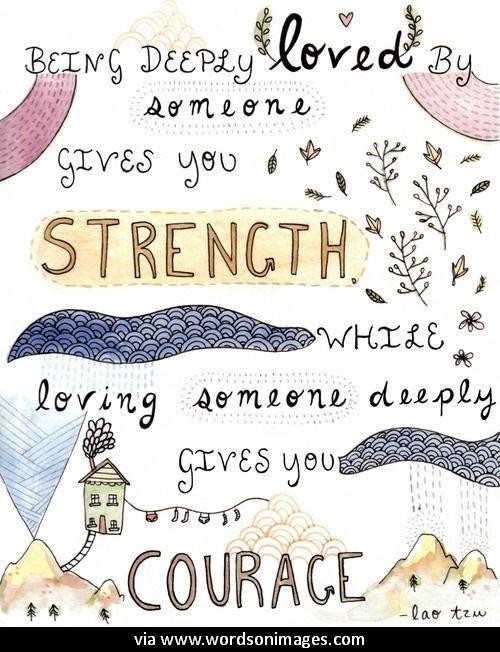 BEING DEEPLY loved BY
someone
GIVES YOU
STRENGTH,
WHILE
loving someone deeply
GIVES YOU
COURAGE
-lao tzu
via www.wordsonimages.com